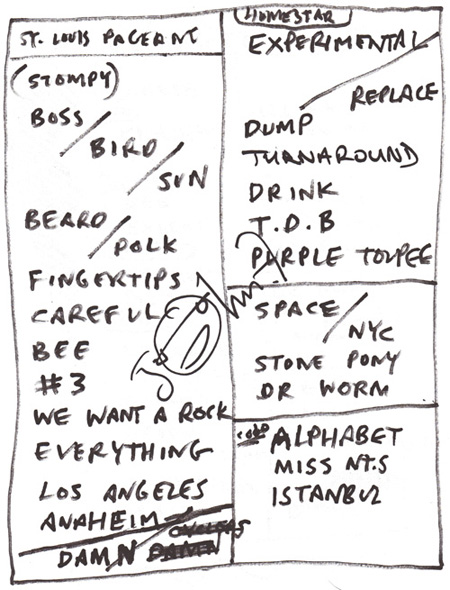 ST. LOUIS PAGEANT
(STOMPY)
BOSS /
BIRD /
SUN
BEARD /
POLK
FINGERTIPS
CAREFUL
BEE
#3
WE WANT A ROCK
EVERYTHING
LOS ANGELES
ANAHEIM
DAMN
HOMESTAR
EXPERIMENTAL /
REPLACE
DUMP
TURNAROUND
DRINK
T.D.B
PURPLE TOUPEE
SPACE /
NYC
STONE PONY
DR WORM
ALPHABET
MISS NTS
ISTANBUL